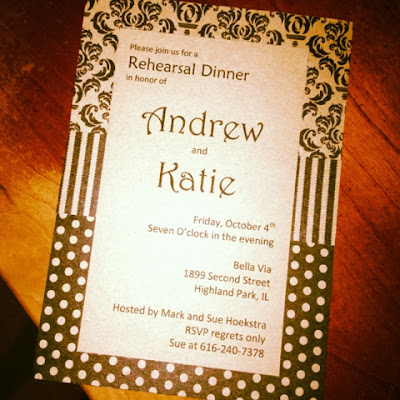 Please join us for a
Rehearsal Dinner
in honor of
Andrew
and
Katie
Friday, October 4th
Seven O'clock in the evening
Bella Via
1899 Second Street
Highland Park, IL
Hosted by Mark and Sue Hoekstra
RSVP regrets only
Sue at 616-240-7378